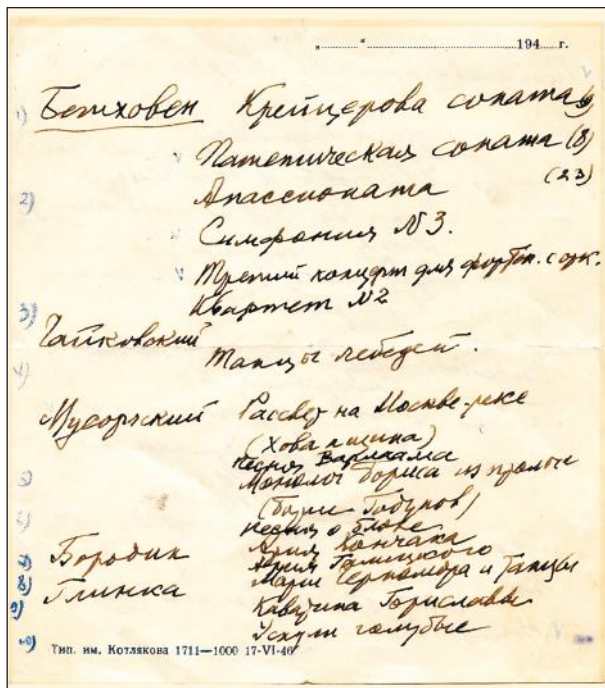 „ “ 194 г.
1) Бетховен Крейцерова соната (9)
Патетическая соната (8)
2) Апассионата (23)
Симфония N 3.
Третий концерт для фортеп. с орк.
3) Квартет N2
Чайковский
Танцы лебедей.
4)
Мусоргский Рассвет на Москве-реке
(Хованщина)
песня Варлаама
5) Монолог Бориса из
(Борис Годунов)
6) песня о блохе
7) Бородин Ария Кончака
Ария Галицкого
8) Глинка Марш Черномора и Танцы
9) Каватина Гориславы
Уснули голубые
10) Тип. им. Котлякова 1711—1000 17-VI-46